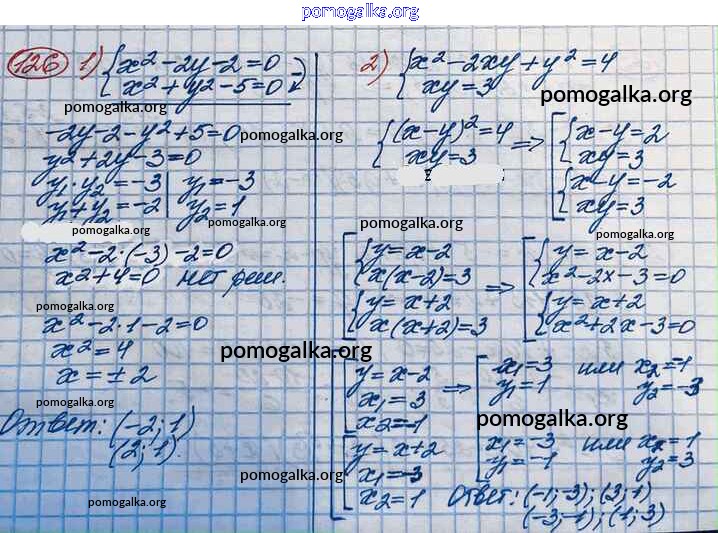 pomogalka.org
126 1) { x² - 2y - 2 = 0
x² + y² - 5 = 0
pomogalka.org
-2y - 2 - y² + 5 = 0
pomogalka.org
y² + 2y - 3 = 0
y₁ · y₂ = -3 | y₁ = -3
y₁ + y₂ = -2 | y₂ = 1
pomogalka.org
pomogalka.org
x² - 2 · (-3) - 2 = 0
x² + 4 = 0 нет реш.
pomogalka.org
x² - 2 · 1 - 2 = 0
x² = 4
pomogalka.org
x = ± 2
pomogalka.org
Ответ: (-2; 1)
(2; 1).
pomogalka.org
pomogalka.org
2) { x² - 2xy + y² = 4
xy = 3
pomogalka.org
{ (x - y)² = 4 ⇒ [ { x - y = 2
xy = 3 xy = 3
{ x - y = -2
xy = 3
pomogalka.org
pomogalka.org
[ { y = x - 2 ⇒ [ { y = x - 2
x(x - 2) = 3 x² - 2x - 3 = 0
{ y = x + 2 { y = x + 2
x(x + 2) = 3 x² + 2x - 3 = 0
[ y = x - 2 ⇒ [ x₁ = 3 или x₂ = -1
x₁ = 3 y₁ = 1 y₂ = -3
x₂ = -1
pomogalka.org
[ y = x + 2 x₁ = -3 или x₂ = 1
x₁ = -3 y₁ = -1 y₂ = 3
x₂ = 1 Ответ: (-1; -3); (3; 1)
(-3; -1); (1; 3)